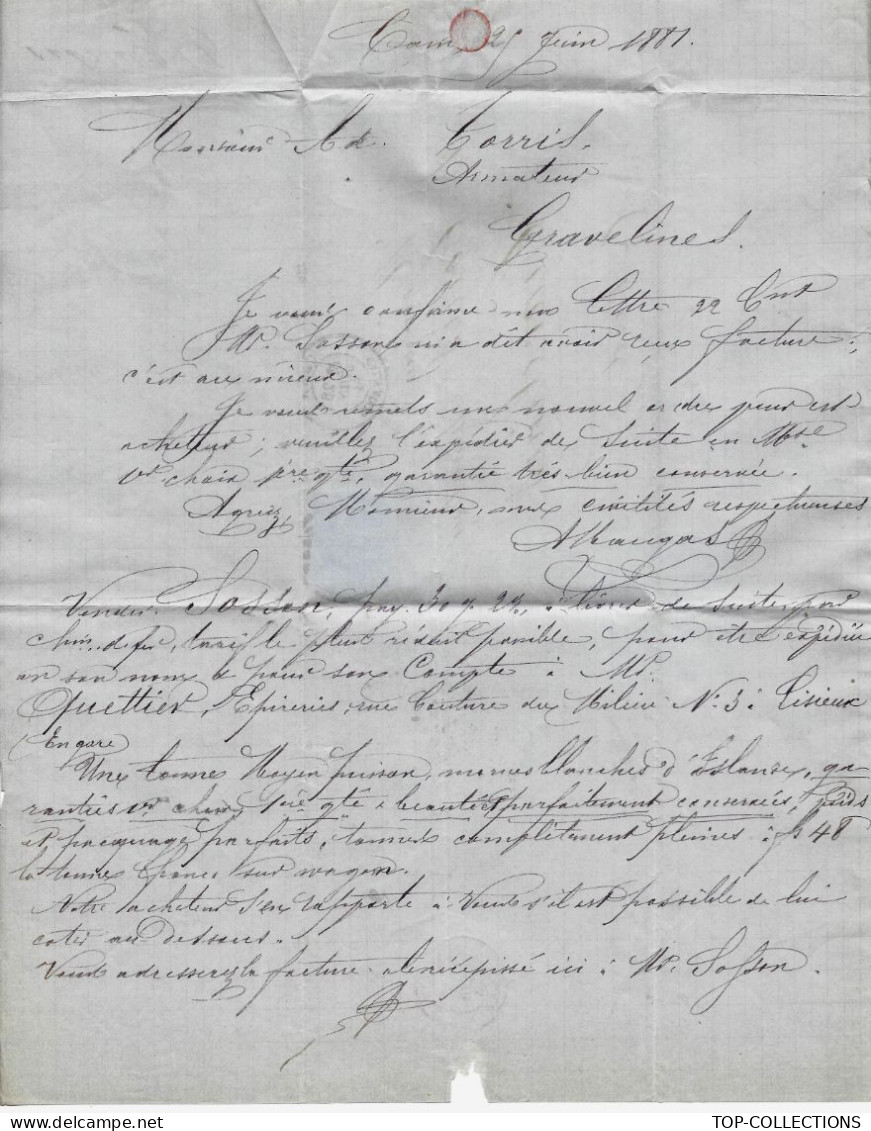 Caen 25 Juin 1881.
Monsieur Ad. Torris.
Armateur
Gravelines.
Je vous confirme ma lettre 22 Cnt
Mr. Sosson m'a dit avoir reçu facture;
c'est au mieux.
Je vous remets un nouvel ordre pour
acheteur; veuillez l'expédier de suite en Mse
1er choix 1re qté, garantie très bien conservée.
Agréez, Monsieur, mes civilités respectueuses
Vendu Sosson, pay. 30 j. 2%, de suite par
chin. de fer, tarif le plus réduit possible, pour être expédiée
en son nom & pour son Compte à Mr.
Quettier, Epiceries, rue Couture du Milieu No. 3 à Lisieux
(En gare)
Une tonne Moyen poisson, morues blanches d'Islande, ga
ranties 1er choix, 1re qté & beautés parfaitement conservées, poids
et pacquage parfaits, tonnes complètement pleines à fs 48
la tonne franco sur wagon.
Notre acheteur s'en rapporte à Vous s'il est possible de lui
coter au dessous.
Vous adresserez la facture & le récépissé ici à Mr. Sosson.
TOP-COLLECTIONS